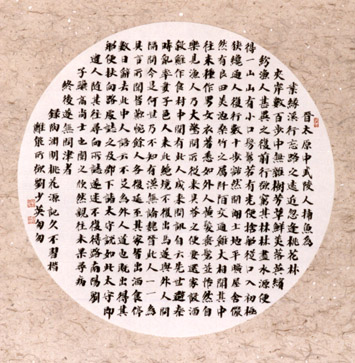 晉太原中武陵人捕魚為
業緣溪行忘路之遠近忽逢桃花林
夾岸數百步中無雜樹芳草鮮美落英繽
紛漁人甚異之復前行欲窮其林林盡水源便
得一山山有小口髣髴若有光便捨船從口入初極
狹纔通人復行數十步豁然開朗土地平曠屋舍儼
然有良田美池桑竹之屬阡陌交通雞犬相聞其中
往來種作男女衣著悉如外人黃髮垂髫並怡然自
樂見漁人乃大驚問所從來具答之便要還家設酒
殺雞作食村中聞有此人咸來問訊自云先世避秦
時亂率妻子邑人來此絕境不復出焉遂與外人間
隔問今是何世乃不知有漢無論魏晉此人一一為
具言所聞皆歎惋餘人各復延至其家皆出酒食停
數日辭去此中人語云不足為外人道也既出得其
船便扶向路處處誌之及郡下詣太守說如此太守即
遣人隨其往尋向所誌遂迷不復得路南陽劉
子驥高尚士也聞之欣然親往未果尋病
終後遂無問津者
錄陶淵明桃花源記久不習楷
劉少英匆匆